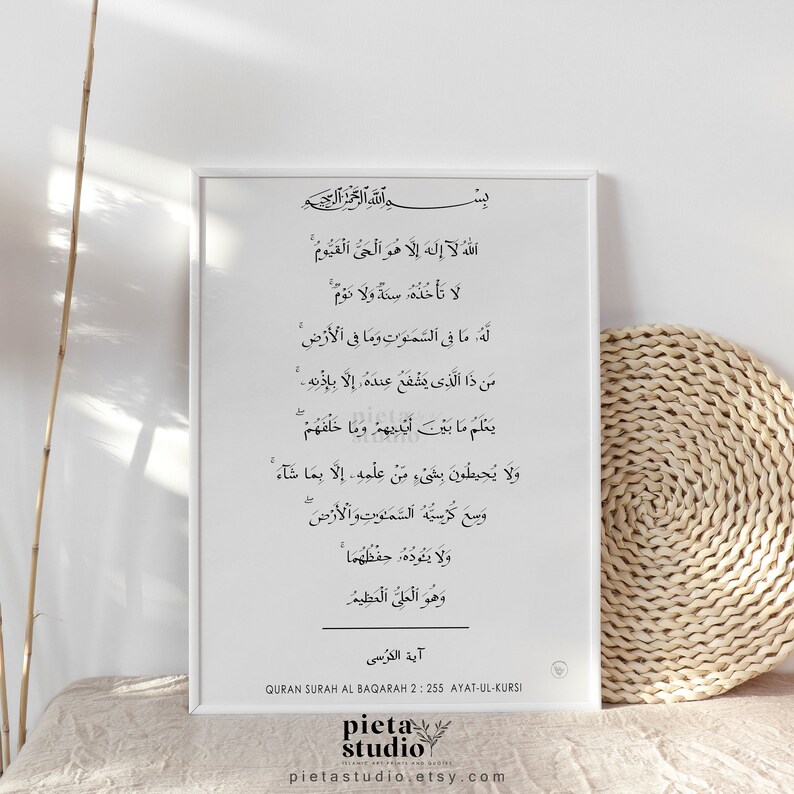 بِسْمِ ٱللَّهِ ٱلرَّحْمَٰنِ ٱلرَّحِيمِ
ٱللَّهُ لَآ إِلَٰهَ إِلَّا هُوَ ٱلْحَىُّ ٱلْقَيُّومُ ۚ
لَا تَأْخُذُهُۥ سِنَةٌ وَلَا نَوْمٌ ۚ
لَّهُۥ مَا فِى ٱلسَّمَٰوَٰتِ وَمَا فِى ٱلْأَرْضِ ۗ
مَن ذَا ٱلَّذِى يَشْفَعُ عِندَهُۥٓ إِلَّا بِإِذْنِهِۦ ۚ
يَعْلَمُ مَا بَيْنَ أَيْدِيهِمْ وَمَا خَلْفَهُمْ ۖ
pieta
studio
وَلَا يُحِيطُونَ بِشَىْءٍ مِّنْ عِلْمِهِۦٓ إِلَّا بِمَا شَآءَ ۚ
وَسِعَ كُرْسِيُّهُ ٱلسَّمَٰوَٰتِ وَٱلْأَرْضَ ۖ
وَلَا يَـُٔودُهُۥ حِفْظُهُمَا ۚ
وَهُوَ ٱلْعَلِىُّ ٱلْعَظِيمُ
آية الكرسى
QURAN SURAH AL BAQARAH 2 : 255 AYAT-UL-KURSI
pieta
studio
ISLAMIC ART PRINTS AND QUOTES
pietastudio.etsy.com